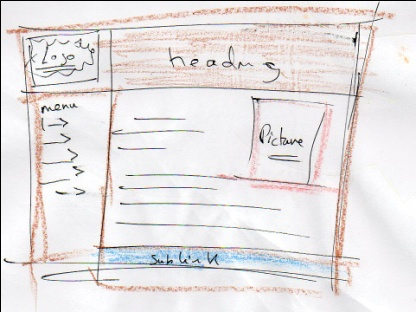 Logo
heading
menu
Picture
Sublink